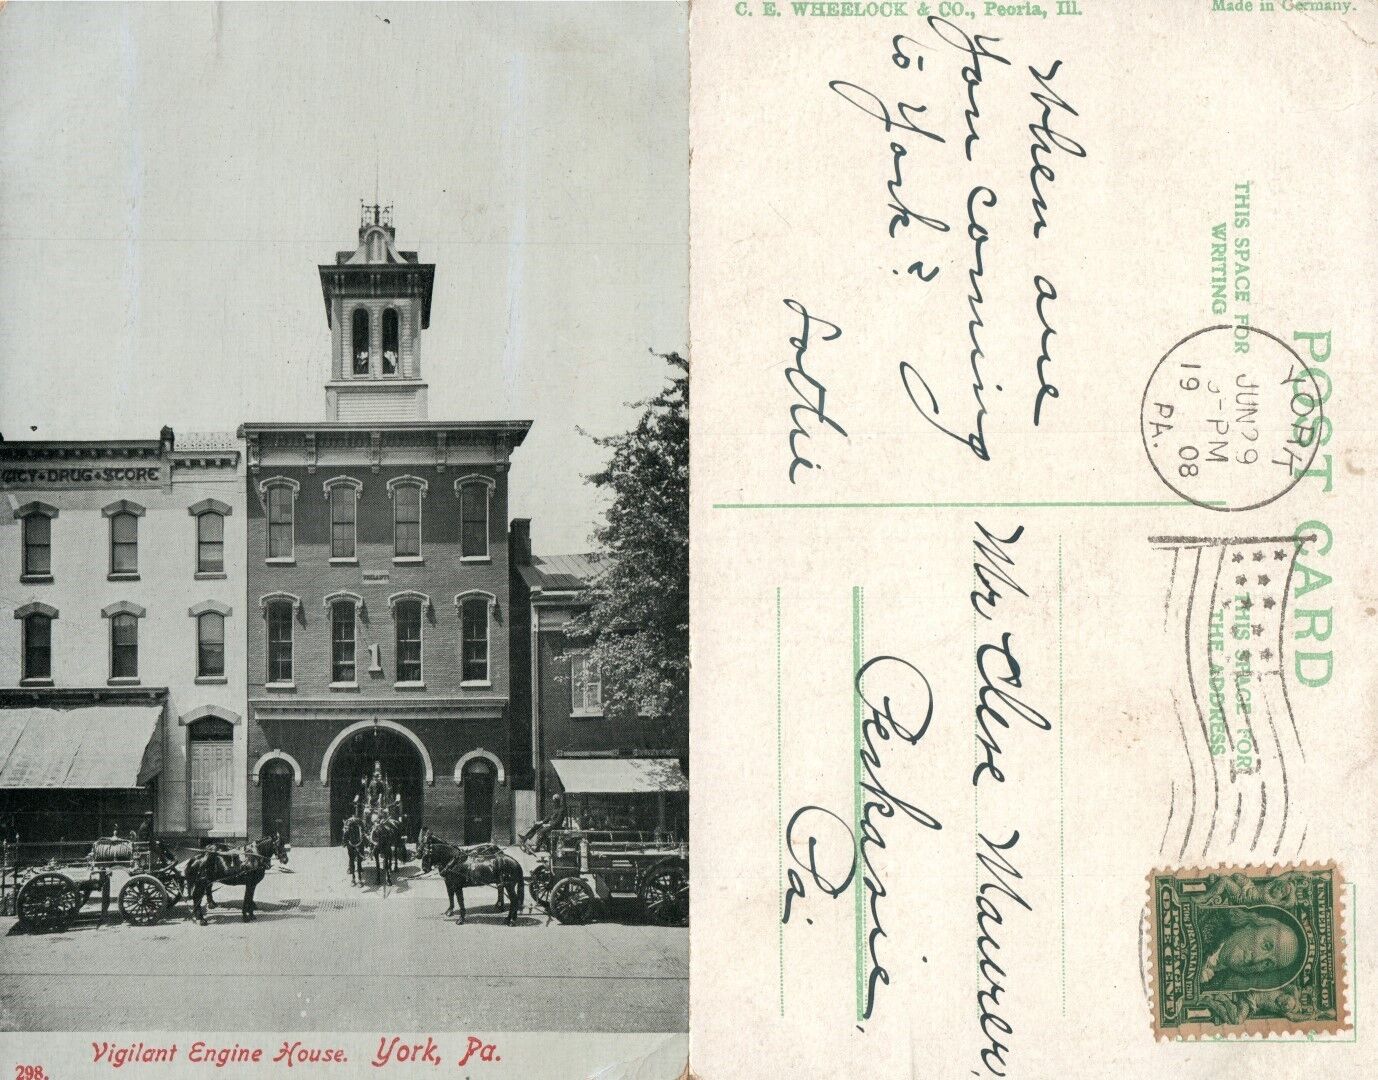 CITY DRUG STORE
1
Vigilant Engine House. York, Pa.
298.
C. E. WHEELOCK & CO., Peoria, Ill.
Made in Germany.
POST CARD
THIS SPACE FOR
WRITING
THIS SPACE FOR
THE ADDRESS
When are
you coming
to York?
Lottie
YORK
JUN 29
PM
19 08
PA.
Mr. Clese Maurer,
Perkasie,
Pa.
1
ONE CENT
1